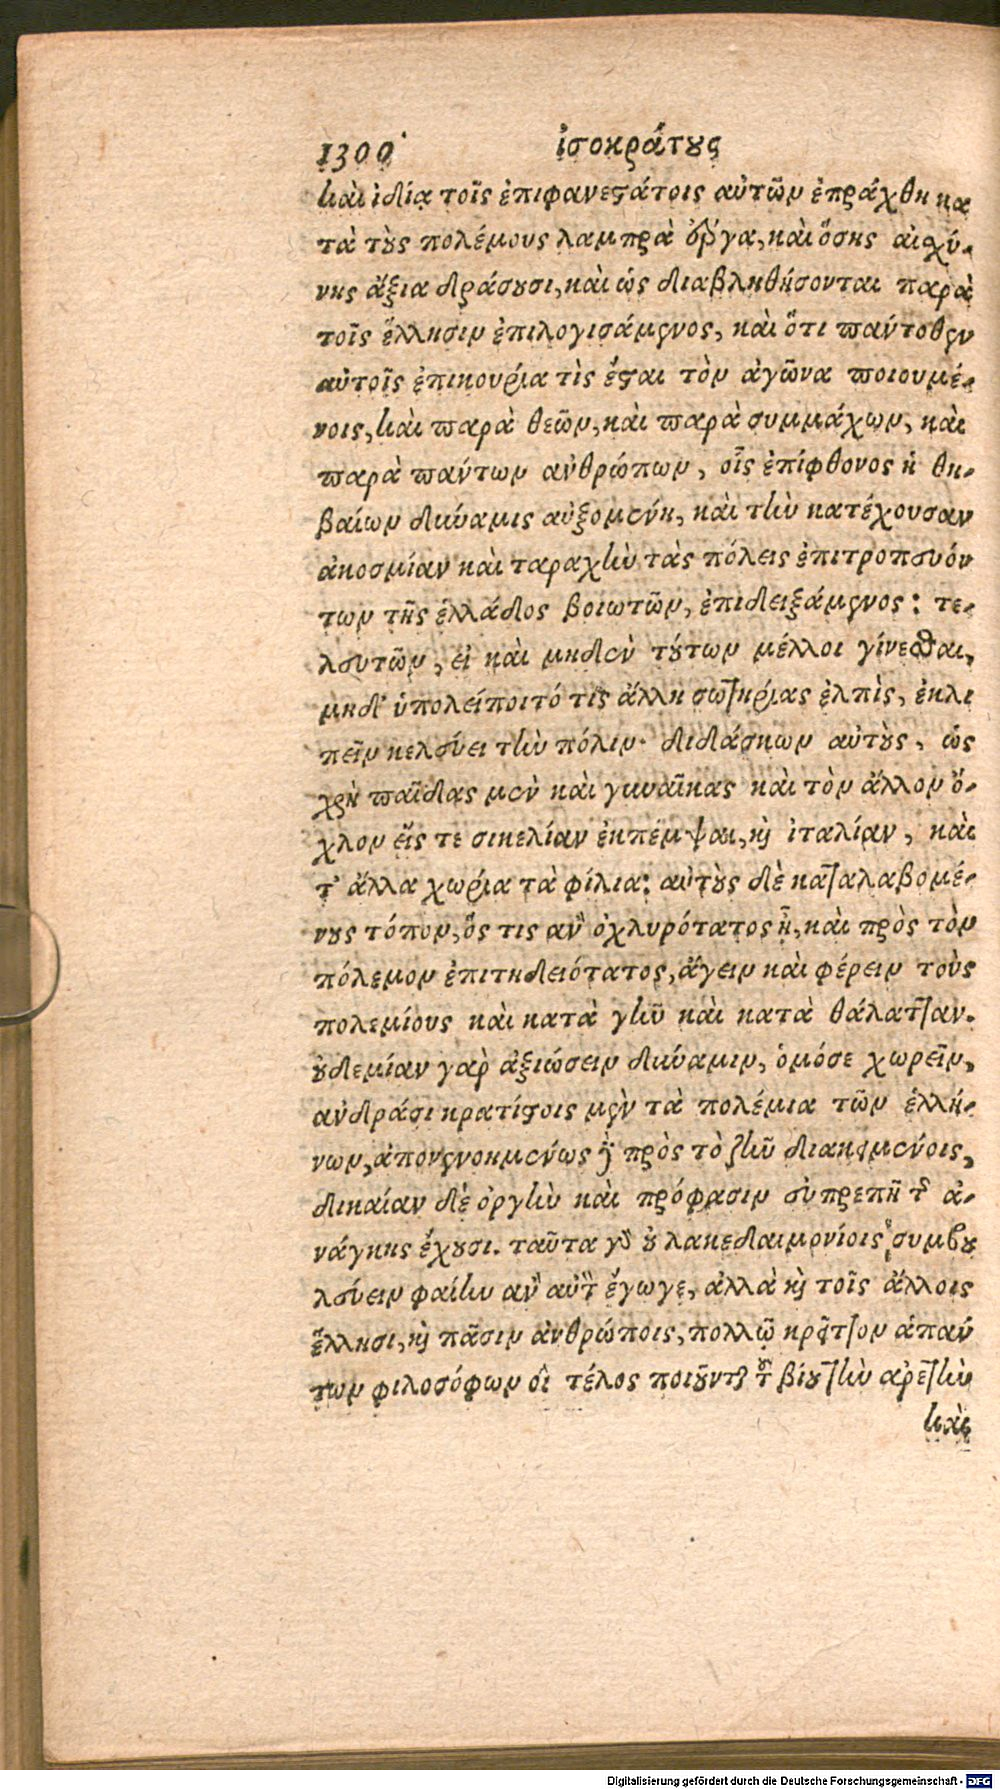 1300 ἰσοκράτους
καὶ ἰδίᾳ τοῖς ἐπιφανεστάτοις αὐτῶν ἐπράχθη κα
τὰ τοὺς πολέμους λαμπρὰ ἔργα, καὶ ὅσης αἰσχύ-
νης ἄξια δράσουσι, καὶ ὡς διαβληθήσονται παρὰ
τοῖς ἕλλησιν ἐπιλογισάμενος, καὶ ὅτι παντόθεν
αὐτοῖς ἐπικουρία τὶς ἔσται τὸν ἀγῶνα ποιουμέ-
νοις, καὶ παρὰ θεῶν, καὶ παρὰ συμμάχων, καὶ
παρὰ πάντων ἀνθρώπων, οἷς ἐπίφθονος ἡ θη-
βαίων δύναμις αὐξομένη, καὶ τὴν κατέχουσαν
ἀκοσμίαν καὶ ταραχὴν τὰς πόλεις ἐπιτροπευόν
των τῆς ἑλλάδος βοιωτῶν, ἐπιδειξάμενος: τε-
λευτῶν, εἰ καὶ μηδὲν τούτων μέλλοι γίνεσθαι,
μηδ' ὑπολείποιτό τις ἄλλη σωτηρίας ἐλπὶς, ἐκλι
πεῖν κελεύει τὴν πόλιν· διδάσκων αὐτοὺς, ὡς
χρὴ παῖδας μὲν καὶ γυναῖκας καὶ τὸν ἄλλον ὄ-
χλον εἴς τε σικελίαν ἐκπέμψαι, καὶ ἰταλίαν, καὶ
τ' ἄλλα χωρία τὰ φίλια: αὐτοὺς δὲ καταλαβομέ-
νους τόπον, ὅς τις ἂν ὀχλυρότατος ᾖ, καὶ πρὸς τὸν
πόλεμον ἐπιτηδειότατος, ἄγειν καὶ φέρειν τοὺς
πολεμίους καὶ κατὰ γῆν καὶ κατὰ θάλατταν.
οὐδεμίαν γὰρ ἀξιώσειν δύναμιν, ὁμόσε χωρεῖν,
ἀνδράσι κρατίστοις μὲν τὰ πολέμια τῶν ἑλλή-
νων, ἀπονενοημένως δὲ πρὸς τὸ ζῆν διακειμένοις,
δικαίαν δὲ ὀργὴν καὶ πρόφασιν εὐπρεπῆ τῆς ἀ-
νάγκης ἔχουσι. ταῦτα γὰρ οὐ λακεδαιμονίοις συμβου
λεύειν φαίην ἂν αὐτὸν ἔγωγε, ἀλλὰ καὶ τοῖς ἄλλοις
ἕλλησι, καὶ πᾶσιν ἀνθρώποις, πολλῷ κρεῖττον ἁπάν
των φιλοσόφων οἳ τέλος ποιοῦνται τοῦ βίου τὴν ἀρετὴν
καὶ
Digitalisierung gefördert durch die Deutsche Forschungsgemeinschaft - DFG